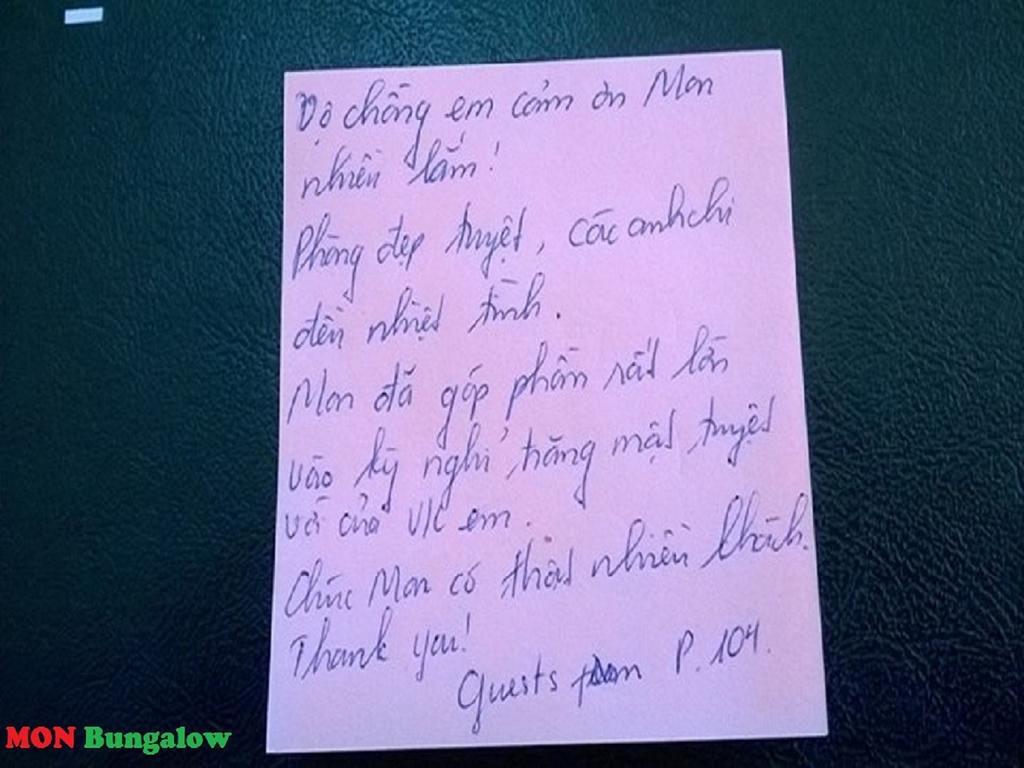 Vợ chồng em cảm ơn Mon
nhiều lắm!
Phòng đẹp tuyệt, các anh chị
đều nhiệt tình.
Mon đã góp phần rất lớn
vào kỳ nghỉ trăng mật tuyệt
vời của V/C em.
Chúc Mon có thật nhiều khách.
Thank you!
Guests from P. 104.
MON Bungalow